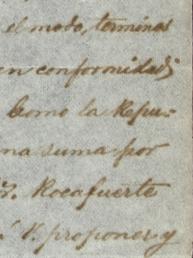 el modo, terminos
en conformidad
Como la Repu-
na suma por
r. Rocafuerte
á V. proponer y